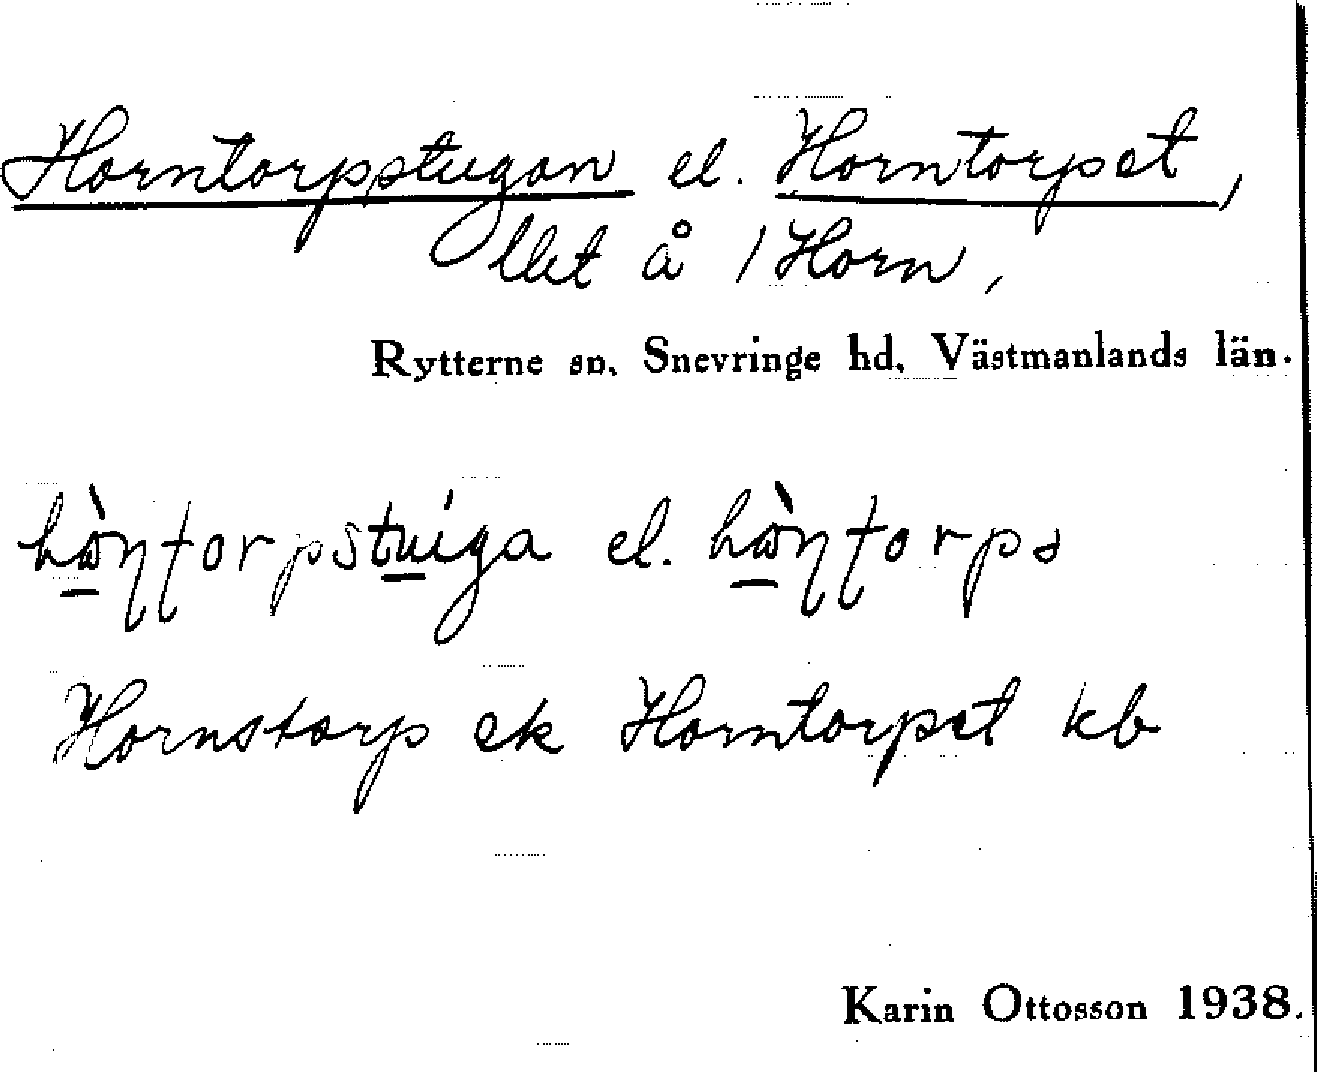 Horntorpstugan el. Horntorpet,
llet å 1 Horn,
Rytterne sn. Snevringe hd. Västmanlands län.
el.
Hornstorp ek Horntorpet kb
Karin Ottosson 1938.